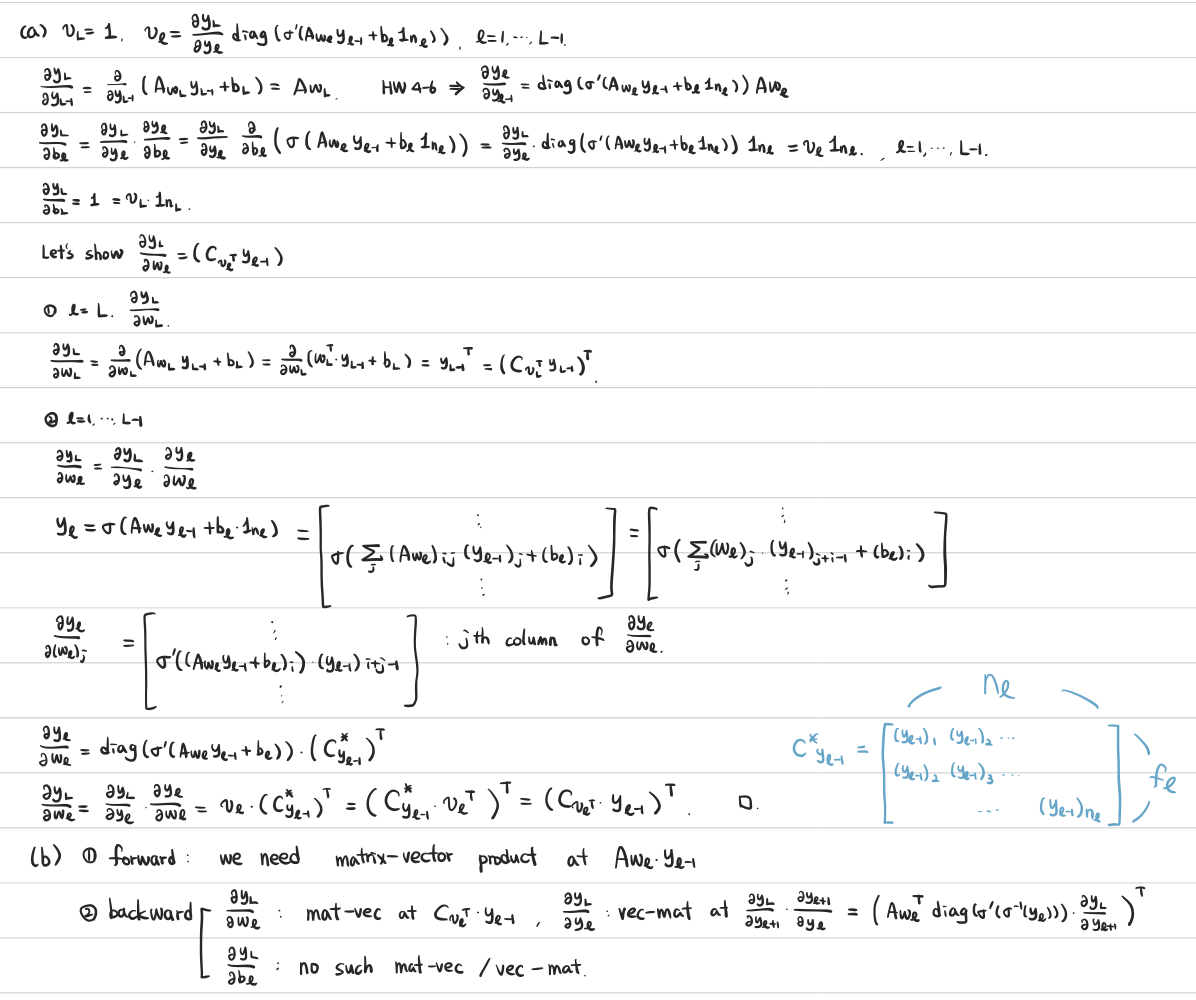 (a) v_L = 1, v_ℓ = ∂y_L/∂y_ℓ diag(σ'(A_{wℓ} y_{ℓ-1} + b_ℓ 1_{nℓ})), ℓ=1,⋯,L-1.
∂y_L/∂y_{L-1} = ∂/∂y_{L-1} (A_{wL} y_{L-1} + b_L) = A_{wL}. HW 4-6 ⇒ ∂y_ℓ/∂y_{ℓ-1} = diag(σ'(A_{wℓ} y_{ℓ-1} + b_ℓ 1_{nℓ})) A_{wℓ}
∂y_L/∂b_ℓ = ∂y_L/∂y_ℓ · ∂y_ℓ/∂b_ℓ = ∂y_L/∂y_ℓ ∂/∂b_ℓ (σ(A_{wℓ} y_{ℓ-1} + b_ℓ 1_{nℓ})) = ∂y_L/∂y_ℓ · diag(σ'(A_{wℓ} y_{ℓ-1} + b_ℓ 1_{nℓ})) 1_{nℓ} = v_ℓ 1_{nℓ}. , ℓ=1,⋯,L-1.
∂y_L/∂b_L = 1 = v_L · 1_{nL}.
Let's show ∂y_L/∂w_ℓ = (C_{v_ℓ^T} y_{ℓ-1})
① ℓ = L. ∂y_L/∂w_L.
∂y_L/∂w_L = ∂/∂w_L (A_{wL} y_{L-1} + b_L) = ∂/∂w_L (w_L^T · y_{L-1} + b_L) = y_{L-1}^T = (C_{v_L^T} y_{L-1})^T.
② ℓ=1,⋯,L-1
∂y_L/∂w_ℓ = ∂y_L/∂y_ℓ · ∂y_ℓ/∂w_ℓ
y_ℓ = σ(A_{wℓ} y_{ℓ-1} + b_ℓ · 1_{nℓ}) = [⋮ σ(∑_j (A_{wℓ})_{ij} (y_{ℓ-1})_j + (b_ℓ)_i) ⋮] = [⋮ σ(∑_j (w_ℓ)_j · (y_{ℓ-1})_{j+i-1} + (b_ℓ)_i) ⋮]
∂y_ℓ/∂(w_ℓ)_j = [⋮ σ'((A_{wℓ} y_{ℓ-1} + b_ℓ)_i) · (y_{ℓ-1})_{i+j-1} ⋮] : jth column of ∂y_ℓ/∂w_ℓ.
∂y_ℓ/∂w_ℓ = diag(σ'(A_{wℓ} y_{ℓ-1} + b_ℓ)) · (C*_{y_{ℓ-1}})^T
n_ℓ
C*_{y_{ℓ-1}} = [(y_{ℓ-1})_1 (y_{ℓ-1})_2 ⋯
(y_{ℓ-1})_2 (y_{ℓ-1})_3 ⋯
⋯ (y_{ℓ-1})_{nℓ}] f_ℓ
∂y_L/∂w_ℓ = ∂y_L/∂y_ℓ · ∂y_ℓ/∂w_ℓ = v_ℓ · (C*_{y_{ℓ-1}})^T = (C*_{y_{ℓ-1}} · v_ℓ^T)^T = (C_{v_ℓ^T} · y_{ℓ-1})^T. □.
(b) ① forward : we need matrix-vector product at A_{wℓ} · y_{ℓ-1}
② backward [ ∂y_L/∂w_ℓ : mat-vec at C_{v_ℓ^T} · y_{ℓ-1} , ∂y_L/∂y_ℓ : vec-mat at ∂y_L/∂y_{ℓ+1} · ∂y_{ℓ+1}/∂y_ℓ = (A_{wℓ}^T diag(σ'(σ^{-1}(y_ℓ))) · ∂y_L/∂y_{ℓ+1})^T
∂y_L/∂b_ℓ : no such mat-vec / vec-mat.